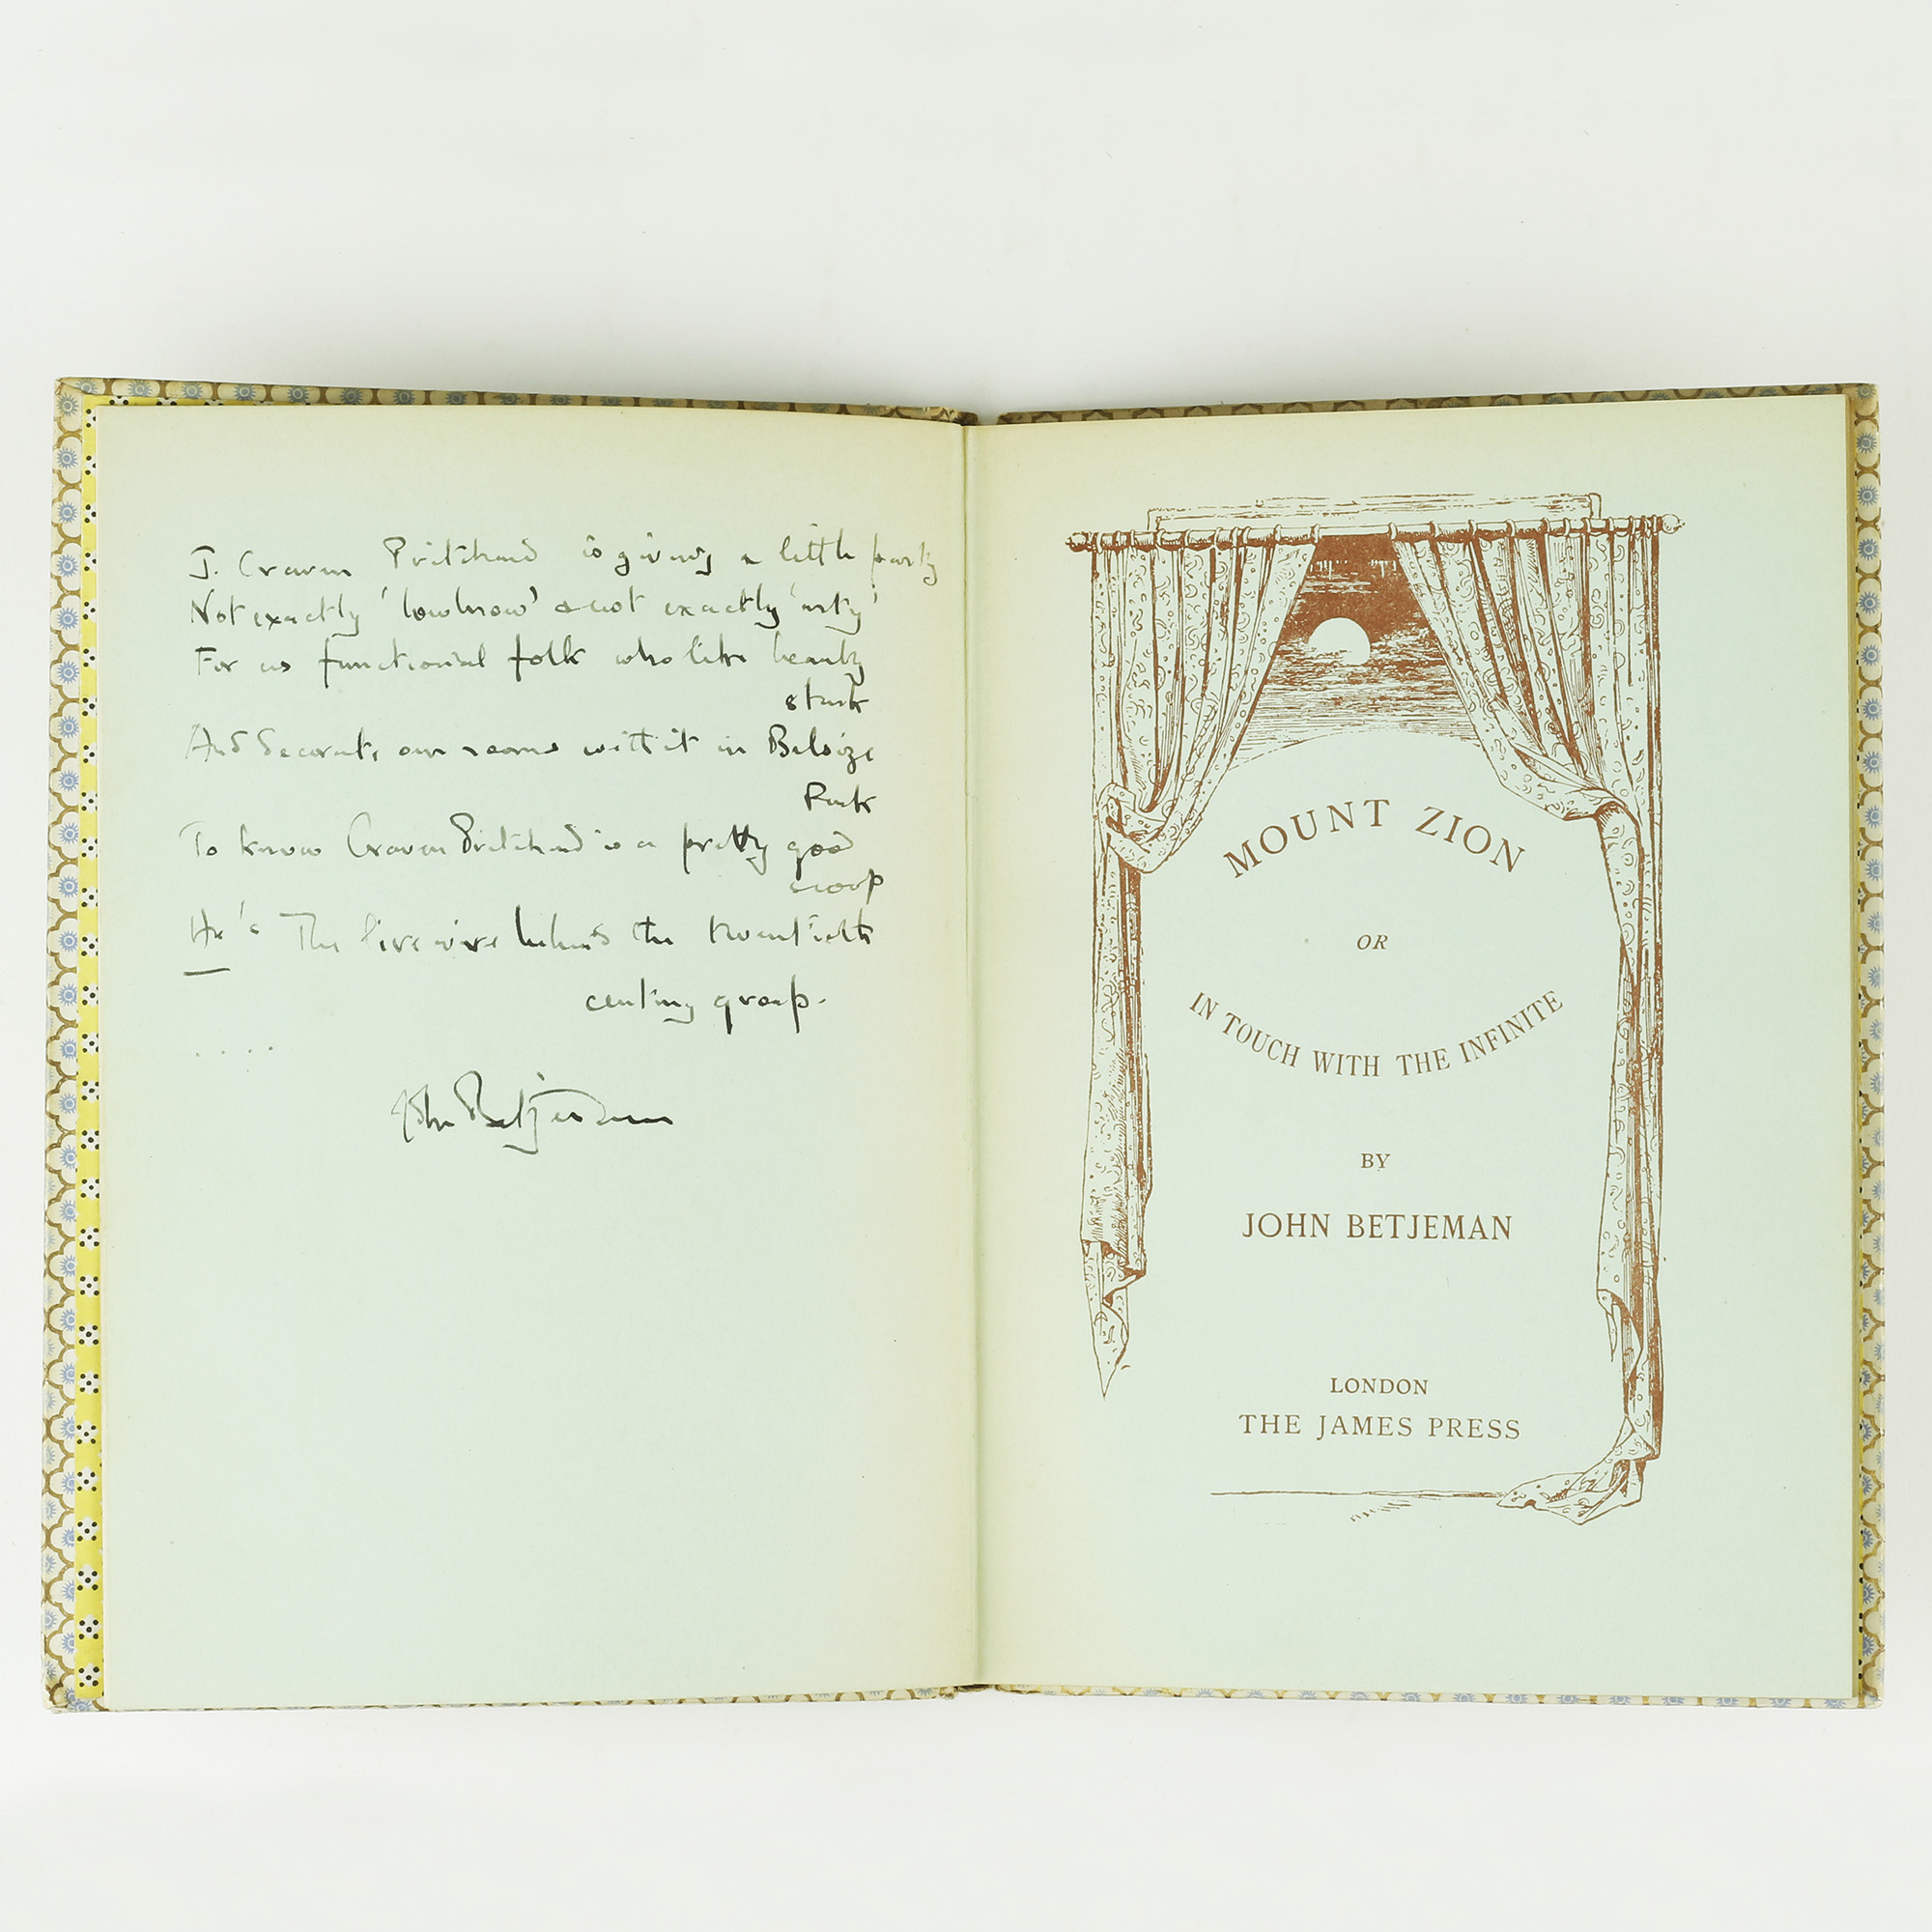 J. Craven Pritchard is giving a little party
Not exactly 'lowbrow' & not exactly 'arty'
For us functional folk who like beauty
stark
And decorate our rooms with it in Belsize
Park
To know Craven Pritchard is a pretty good
scoop
He's The live wire behind the twentieth
century group.
....
John Betjeman
MOUNT ZION
OR
IN TOUCH WITH THE INFINITE
BY
JOHN BETJEMAN
LONDON
THE JAMES PRESS